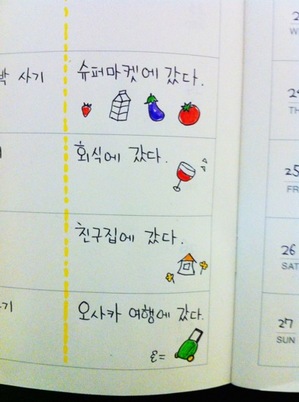 박 사기
슈퍼마켓에 갔다.
회식에 갔다.
친구집에 갔다.
오사카 여행에 갔다.
25
FR
26
SAT
27
SUN